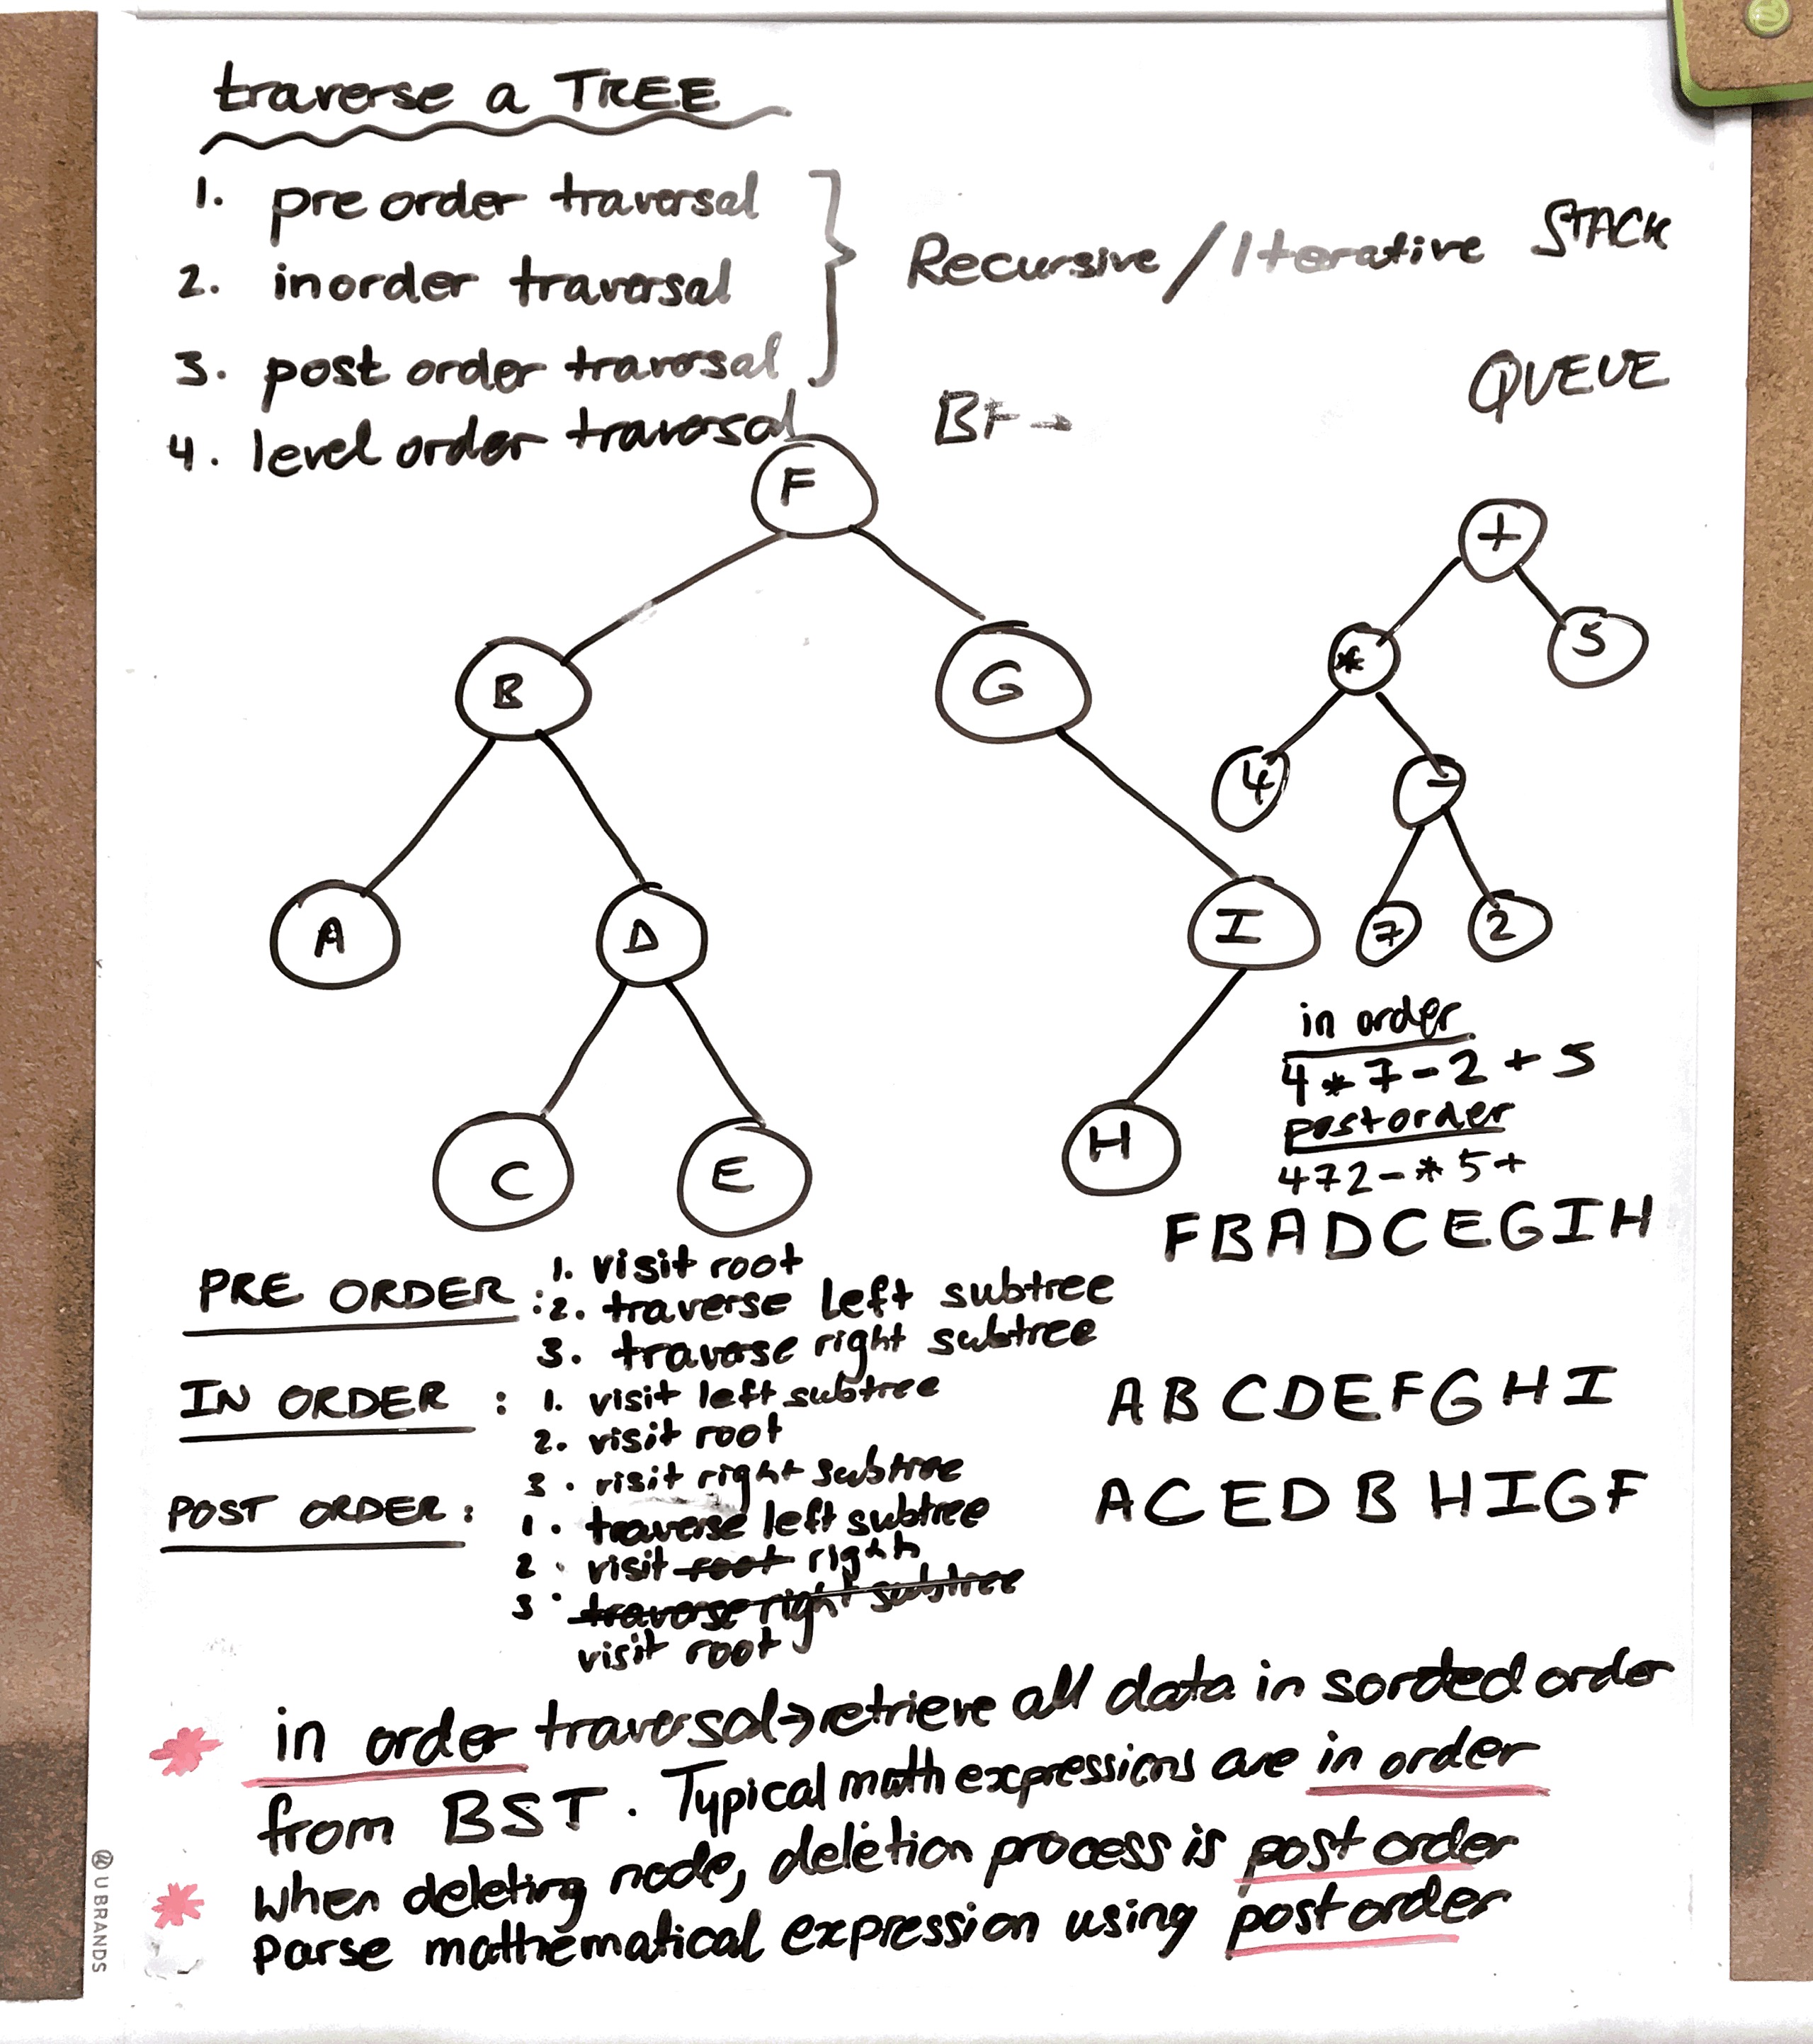 traverse a TREE
1. pre order traversal
2. inorder traversal
3. post order traversal
4. level order traversal
Recursive / Iterative STACK
QUEUE
F
B G
A D I
C E H
+
* 5
4 -
7 2
in order
4 * 7 - 2 + 5
postorder
472-*5+
PRE ORDER : 1. visit root
2. traverse left subtree
3. traverse right subtree
FBADCEGIH
IN ORDER : 1. visit left subtree
2. visit root
3. visit right subtree
ABCDEFGHI
POST ORDER : 1. traverse left subtree
2. visit root right
3. traverse right subtree
visit root
ACEDBHIGF
* in order traversal → retrieve all data in sorded order
from BST. Typical math expressions are in order
* when deleting node, deletion process is post order
parse mathematical expression using postorder
U BRANDS